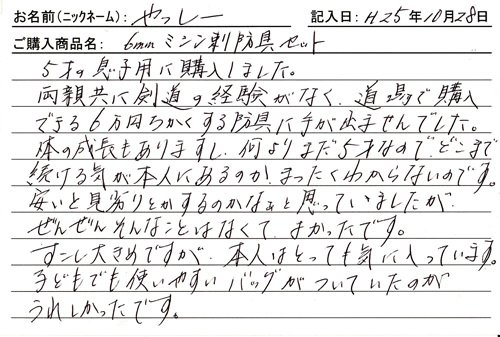 お名前(ニックネーム): やっしー 記入日: H25年10月28日
ご購入商品名: 6mmミシン刺防具セット
5才の息子用に購入しました。
両親共に剣道の経験がなく、道場で購入
できる6万円ちかくする防具に手が出ませんでした。
体の成長もありますし、何よりまだ5才なのでどこまで
続ける気が本人にあるのか、まったくわからないのです。
安いと見劣りとかするのかなぁと思っていましたが、
ぜんぜんそんなことはなくて、よかったです。
すこし大きめですが、本人はとっても気に入っています。
子どもでも使いやすいバッグがついていたのが
うれしかったです。